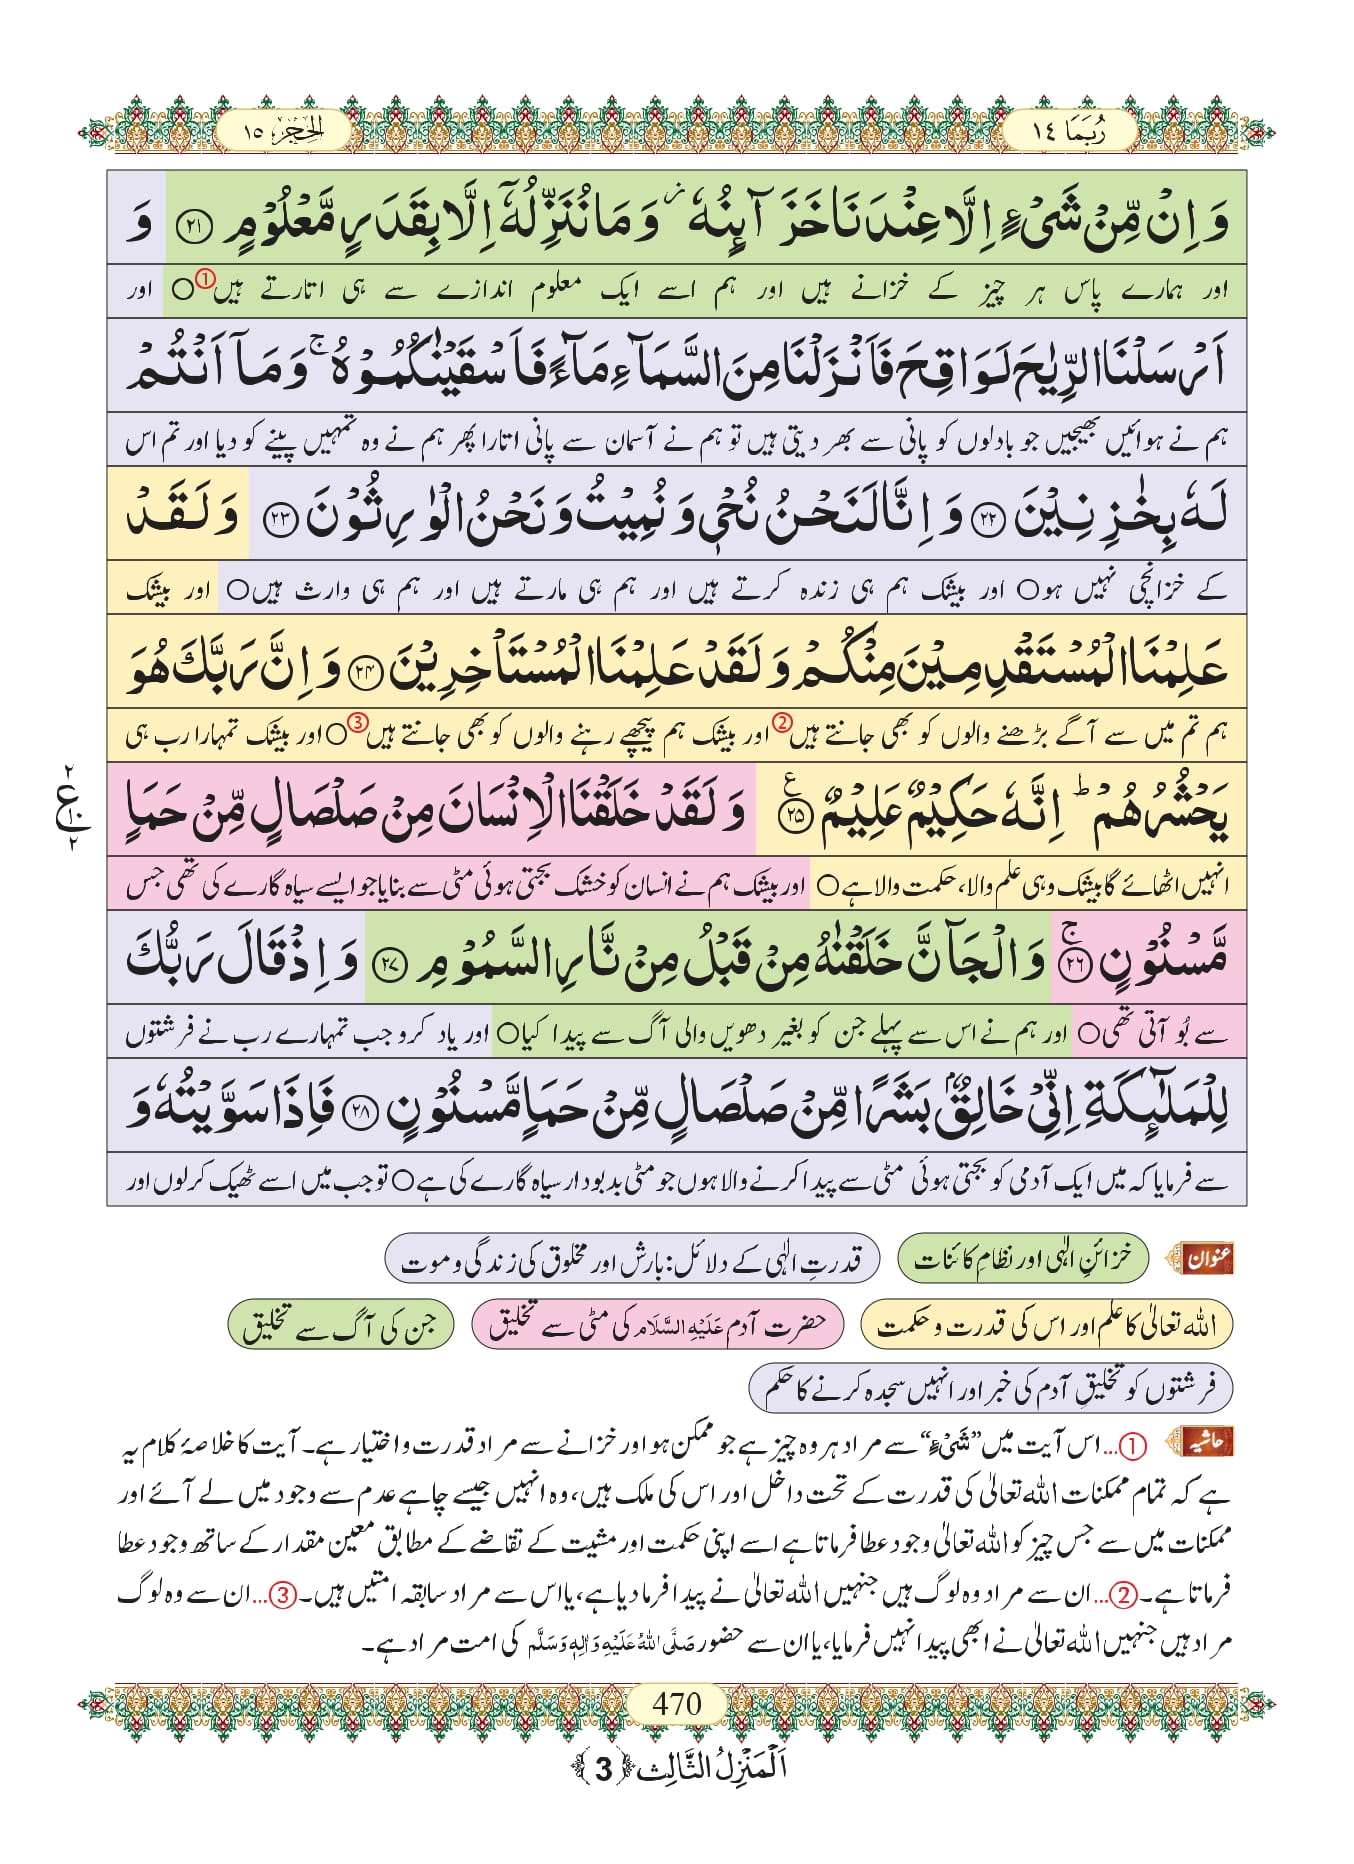 رُبَمَا ١٤
الحِجر ١٥
وَ اِنْ مِّنْ شَیْءٍ اِلَّا عِنْدَنَا خَزَآىٕنُهٗ٘ وَ مَا نُنَزِّلُهٗۤ اِلَّا بِقَدَرٍ مَّعْلُوْمٍ ﴿۲۱﴾ وَ
اور ہمارے پاس ہر چیز کے خزانے ہیں اور ہم اسے ایک معلوم اندازے سے ہی اتارتے ہیں① ○ اور
اَرْسَلْنَا الرِّیٰحَ لَوَاقِحَ فَاَنْزَلْنَا مِنَ السَّمَآءِ مَآءً فَاَسْقَیْنٰكُمُوْهُۚ وَ مَاۤ اَنْتُمْ
ہم نے ہوائیں بھیجیں جو بادلوں کو پانی سے بھر دیتی ہیں تو ہم نے آسمان سے پانی اتارا پھر ہم نے وہ تمہیں پینے کو دیا اور تم اس
لَهٗ بِخٰزِنِیْنَ ﴿۲۲﴾ وَ اِنَّا لَنَحْنُ نُحْیٖ وَ نُمِیْتُ وَ نَحْنُ الْوٰرِثُوْنَ ﴿۲۳﴾ وَ لَقَدْ
کے خزانچی نہیں ہو○ اور بیشک ہم ہی زندہ کرتے ہیں اور ہم ہی مارتے ہیں اور ہم ہی وارث ہیں○ اور بیشک
عَلِمْنَا الْمُسْتَقْدِمِیْنَ مِنْكُمْ وَ لَقَدْ عَلِمْنَا الْمُسْتَاْخِرِیْنَ ﴿۲۴﴾ وَ اِنَّ رَبَّكَ هُوَ
ہم تم میں سے آگے بڑھنے والوں کو بھی جانتے ہیں② اور بیشک ہم پیچھے رہنے والوں کو بھی جانتے ہیں③ ○ اور بیشک تمہارا رب ہی
یَحْشُرُهُمْؕ اِنَّهٗ حَكِیْمٌ عَلِیْمٌ ﴿۲۵﴾ۧ وَ لَقَدْ خَلَقْنَا الْاِنْسَانَ مِنْ صَلْصَالٍ مِّنْ حَمَاٍ
۲ ع ۲
انہیں اٹھائے گا بیشک وہی علم والا، حکمت والا ہے○ اور بیشک ہم نے انسان کو خشک بجتی ہوئی مٹی سے بنایا جو ایسے سیاہ گارے کی تھی جس
مَّسْنُوْنٍ ﴿۲۶﴾ۚ وَ الْجَآنَّ خَلَقْنٰهُ مِنْ قَبْلُ مِنْ نَّارِ السَّمُوْمِ ﴿۲۷﴾ وَ اِذْ قَالَ رَبُّكَ
سے بُو آتی تھی○ اور ہم نے اس سے پہلے جن کو بغیر دھویں والی آگ سے پیدا کیا○ اور یاد کرو جب تمہارے رب نے فرشتوں
لِلْمَلٰٓىٕكَةِ اِنِّیْ خَالِقٌۢ بَشَرًا مِّنْ صَلْصَالٍ مِّنْ حَمَاٍ مَّسْنُوْنٍ ﴿۲۸﴾ فَاِذَا سَوَّیْتُهٗ وَ
سے فرمایا کہ میں ایک آدمی کو بجتی ہوئی مٹی سے پیدا کرنے والا ہوں جو مٹی بدبودار سیاہ گارے کی ہے○ تو جب میں اسے ٹھیک کرلوں اور
عنوان خزائنِ الٰہی اور نظامِ کائنات قدرتِ الٰہی کے دلائل: بارش اور مخلوق کی زندگی و موت
اللہ تعالیٰ کا علم اور اس کی قدرت و حکمت حضرت آدم عَلَیْهِ السَّلَام کی مٹی سے تخلیق جن کی آگ سے تخلیق
فرشتوں کو تخلیقِ آدم کی خبر اور انہیں سجدہ کرنے کا حکم
حاشیہ ①... اس آیت میں ”شَیْءٍ“ سے مراد ہر وہ چیز ہے جو ممکن ہو اور خزانے سے مراد قدرت و اختیار ہے۔ آیت کا خلاصۂ کلام یہ
ہے کہ تمام ممکنات اللہ تعالیٰ کی قدرت کے تحت داخل اور اس کی ملک ہیں، وہ انہیں جیسے چاہے عدم سے وجود میں لے آئے اور
ممکنات میں سے جس چیز کو اللہ تعالیٰ وجود عطا فرماتا ہے اسے اپنی حکمت اور مشیت کے تقاضے کے مطابق معین مقدار کے ساتھ وجود عطا
فرماتا ہے۔ ②... ان سے مراد وہ لوگ ہیں جنہیں اللہ تعالیٰ نے پیدا فرما دیا ہے، یا اس سے مراد سابقہ امتیں ہیں۔ ③... ان سے وہ لوگ
مراد ہیں جنہیں اللہ تعالیٰ نے ابھی پیدا نہیں فرمایا، یا ان سے حضور صَلَّی اللہُ عَلَیْهِ وَاٰلِهٖ وَسَلَّم کی امت مراد ہے۔
470
اَلْمَنْزِلُ الثَّالِث ﴿3﴾